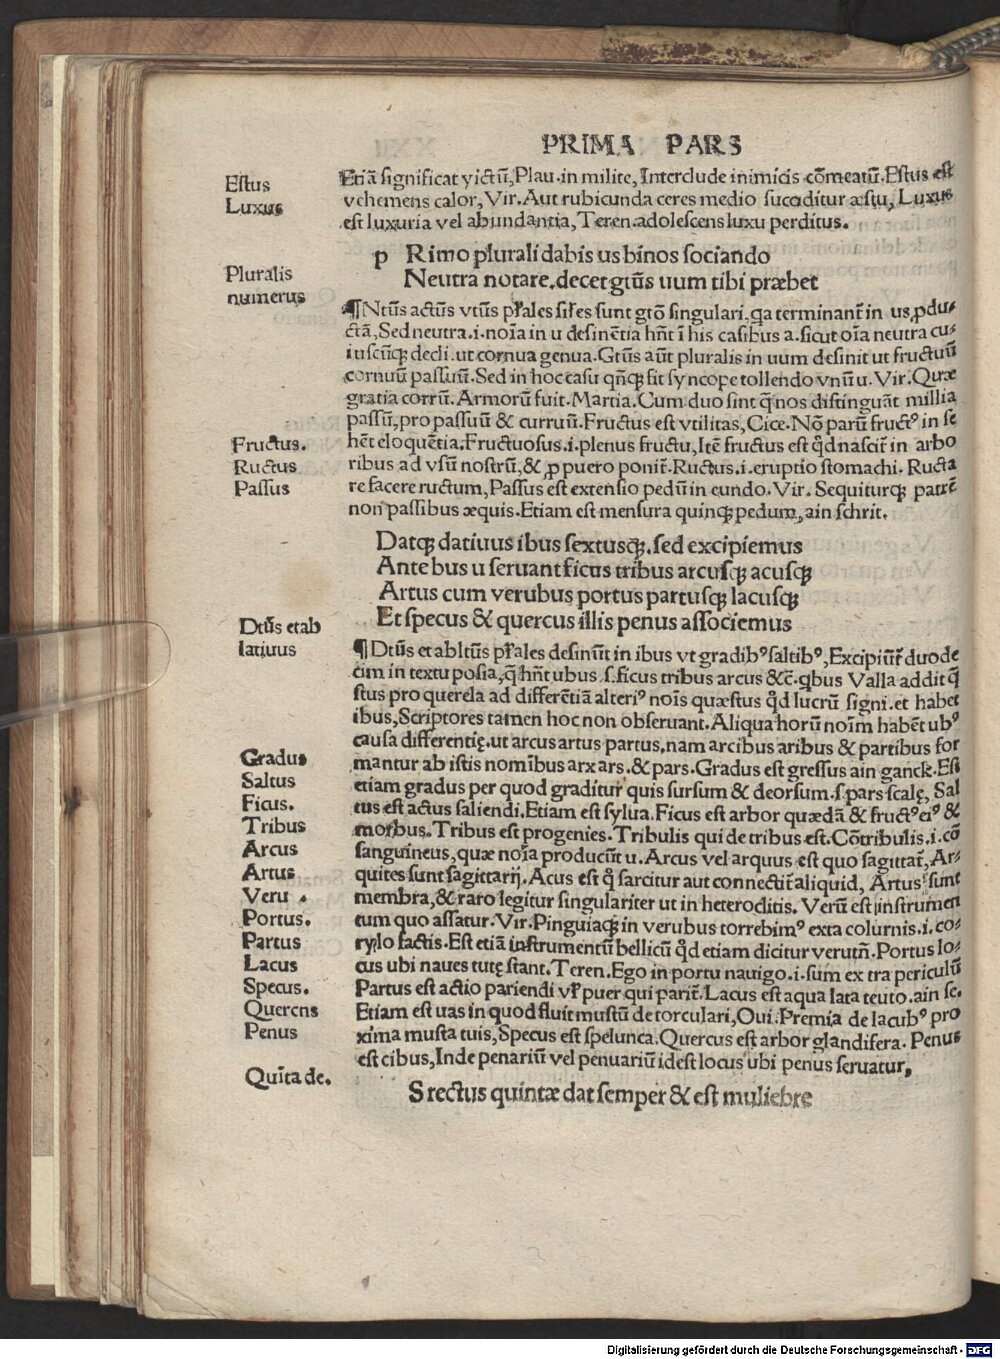 PRIMA PARS
Estus
Luxus
Etiā significat victū, Plau. in milite, Interclude inimicis cōmeatū. Estus est
vehemens calor, Vir. Aut rubicunda ceres medio succiditur æstu, Luxus
est luxuria vel abundantia, Teren. adolescens luxu perditus.
p Rimo plurali dabis us binos sociando
Neutra notare. decet gt̄us uum tibi præbet
Pluralis
numerus
¶ Nt̄us act̄us vt̄us pl̄ales sil̄es sunt gt̄o singulari. qa terminant̄ in us, ꝓdu⸗
ctā, Sed neutra .i. noīa in u desinētia hn̄t ī his casibus a. sicut oīa neutra cu⸗
iuscūqꝫ decli. ut cornua genua. Gt̄us aūt pluralis in uum desinit ut fructuū
cornuū passuū. Sed in hoc casu qn̄qꝫ fit syncope tollendo vnū u. Vir. Quæ
gratia corrū. Armorū fuit. Martia. Cum duo sint q̄ nos distinguāt millia
passū, pro passuū & curruū. Fructus est vtilitas, Cice. Nō parū fructꝰ in se
Fructus.
Ructus
Passus
hēt eloquētia. Fructuosus .i. plenus fructu, Itē fructus est qd̄ nascit̄ in arbo
ribus ad vsū nostrū, & ꝓ puero ponit̄. Ructus .i. eruptio stomachi. Ructa
re facere ructum, Passus est extensio pedū in eundo. Vir. Sequiturqꝫ patrē
non passibus æquis. Etiam est mensura quinqꝫ pedum, ain schrit.
Datqꝫ datiuus ibus sextusqꝫ. sed excipiemus
Ante bus u seruant ficus tribus arcusqꝫ acusqꝫ
Artus cum verubus portus partusqꝫ lacusqꝫ
Et specus & quercus illis penus associemus
Dt̄us et ab
latiuus
¶ Dt̄us et ablt̄us pl̄ales desinūt in ibus vt gradibꝰ saltibꝰ, Excipiūt̄ duode
cim in textu posia, q̄ hn̄t ubus .s. ficus tribus arcus &c̄. qbus Valla addit q̄
stus pro querela ad differētiā alteriꝰ noīs quæstus qd̄ lucrū signi. et habet
ibus, Scriptores tamen hoc non obseruant. Aliqua horū noīm habēt ubꝰ
causa differentię. ut arcus artus partus. nam arcibus aribus & partibus for
Gradus
Saltus
Ficus.
Tribus
Arcus
Artus
Veru .
Portus.
Partus
Lacus
Specus.
Quercns
Penus
mantur ab istis nomībus arx ars. & pars. Gradus est gressus ain ganck. Est
etiam gradus per quod graditur quis sursum & deorsum .s. pars scalę, Sal
tus est actus saliendi. Etiam est sylua. Ficus est arbor quædā & fructꝰ eiꝰ &
morbus. Tribus est progenies. Tribulis qui de tribus est. Cōtribulis .i. cō
sanguineus, quæ noīa producūt u. Arcus vel arquus est quo sagittat̄, Ar⸗
quites sunt sagittarij. Acus est q̄ sarcitur aut connectit̄ aliquid, Artus sunt
membra, & raro legitur singulariter ut in heteroclitis. Verū est instrumen
tum quo assatur. Vir. Pinguiaqꝫ in verubus torrebimꝰ exta colurnis .i. co⸗
rylo factis. Est etiā instrumentū bellicū qd̄ etiam dicitur verutn̄. Portus lo⸗
cus ubi naues tutę stant. Teren. Ego in portu nauigo .i. sum extra periculū
Partus est actio pariendi vl̄ puer qui parit̄. Lacus est aqua lata teuto. ain se.
Etiam est uas in quod fluit mustū de torculari, Oui. Premia de lacubꝰ pro
xima musta tuis, Specus est spelunca. Quercus est arbor glandifera. Penus
est cibus, Inde penariū vel penuariū idest locus ubi penus seruatur,
Quīta de.
S rectus quintæ dat semper & est muliebre
Digitalisierung gefördert durch die Deutsche Forschungsgemeinschaft - DFG